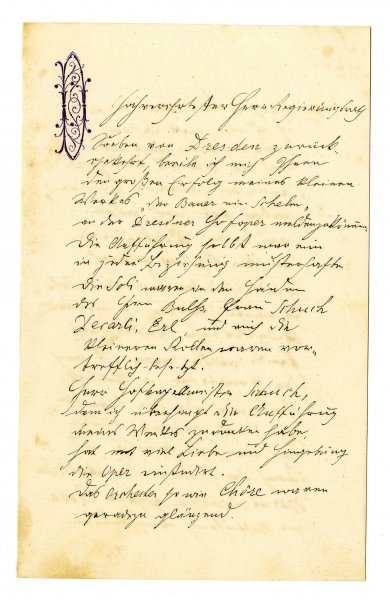 Hochverehrtester Herr Regierungsrath
Soeben von Dresden zurück
gekehrt, beeile ich mich Ihnen
den großen Erfolg meines kleinen
Werkes "Der Bauer ein Schelm"
an der Dresdner Hofoper melden zu können.
Die Aufführung selbst war eine
in jeder Beziehung musterhafte
Die Soli waren in den Händen
des Herrn Bulß, Frau Schuch
Decarli, Erl, und auch die
kleineren Rollen waren vor-
trefflich besetzt.
Herr Hofkapellmeister Schuch,
dem ich überhaupt die Aufführung
meines Werkes zu danken habe
hat mit viel Liebe und Hingebung
die Oper einstudirt.
Das Orchester so wie Chöre waren
geradezu glänzend.